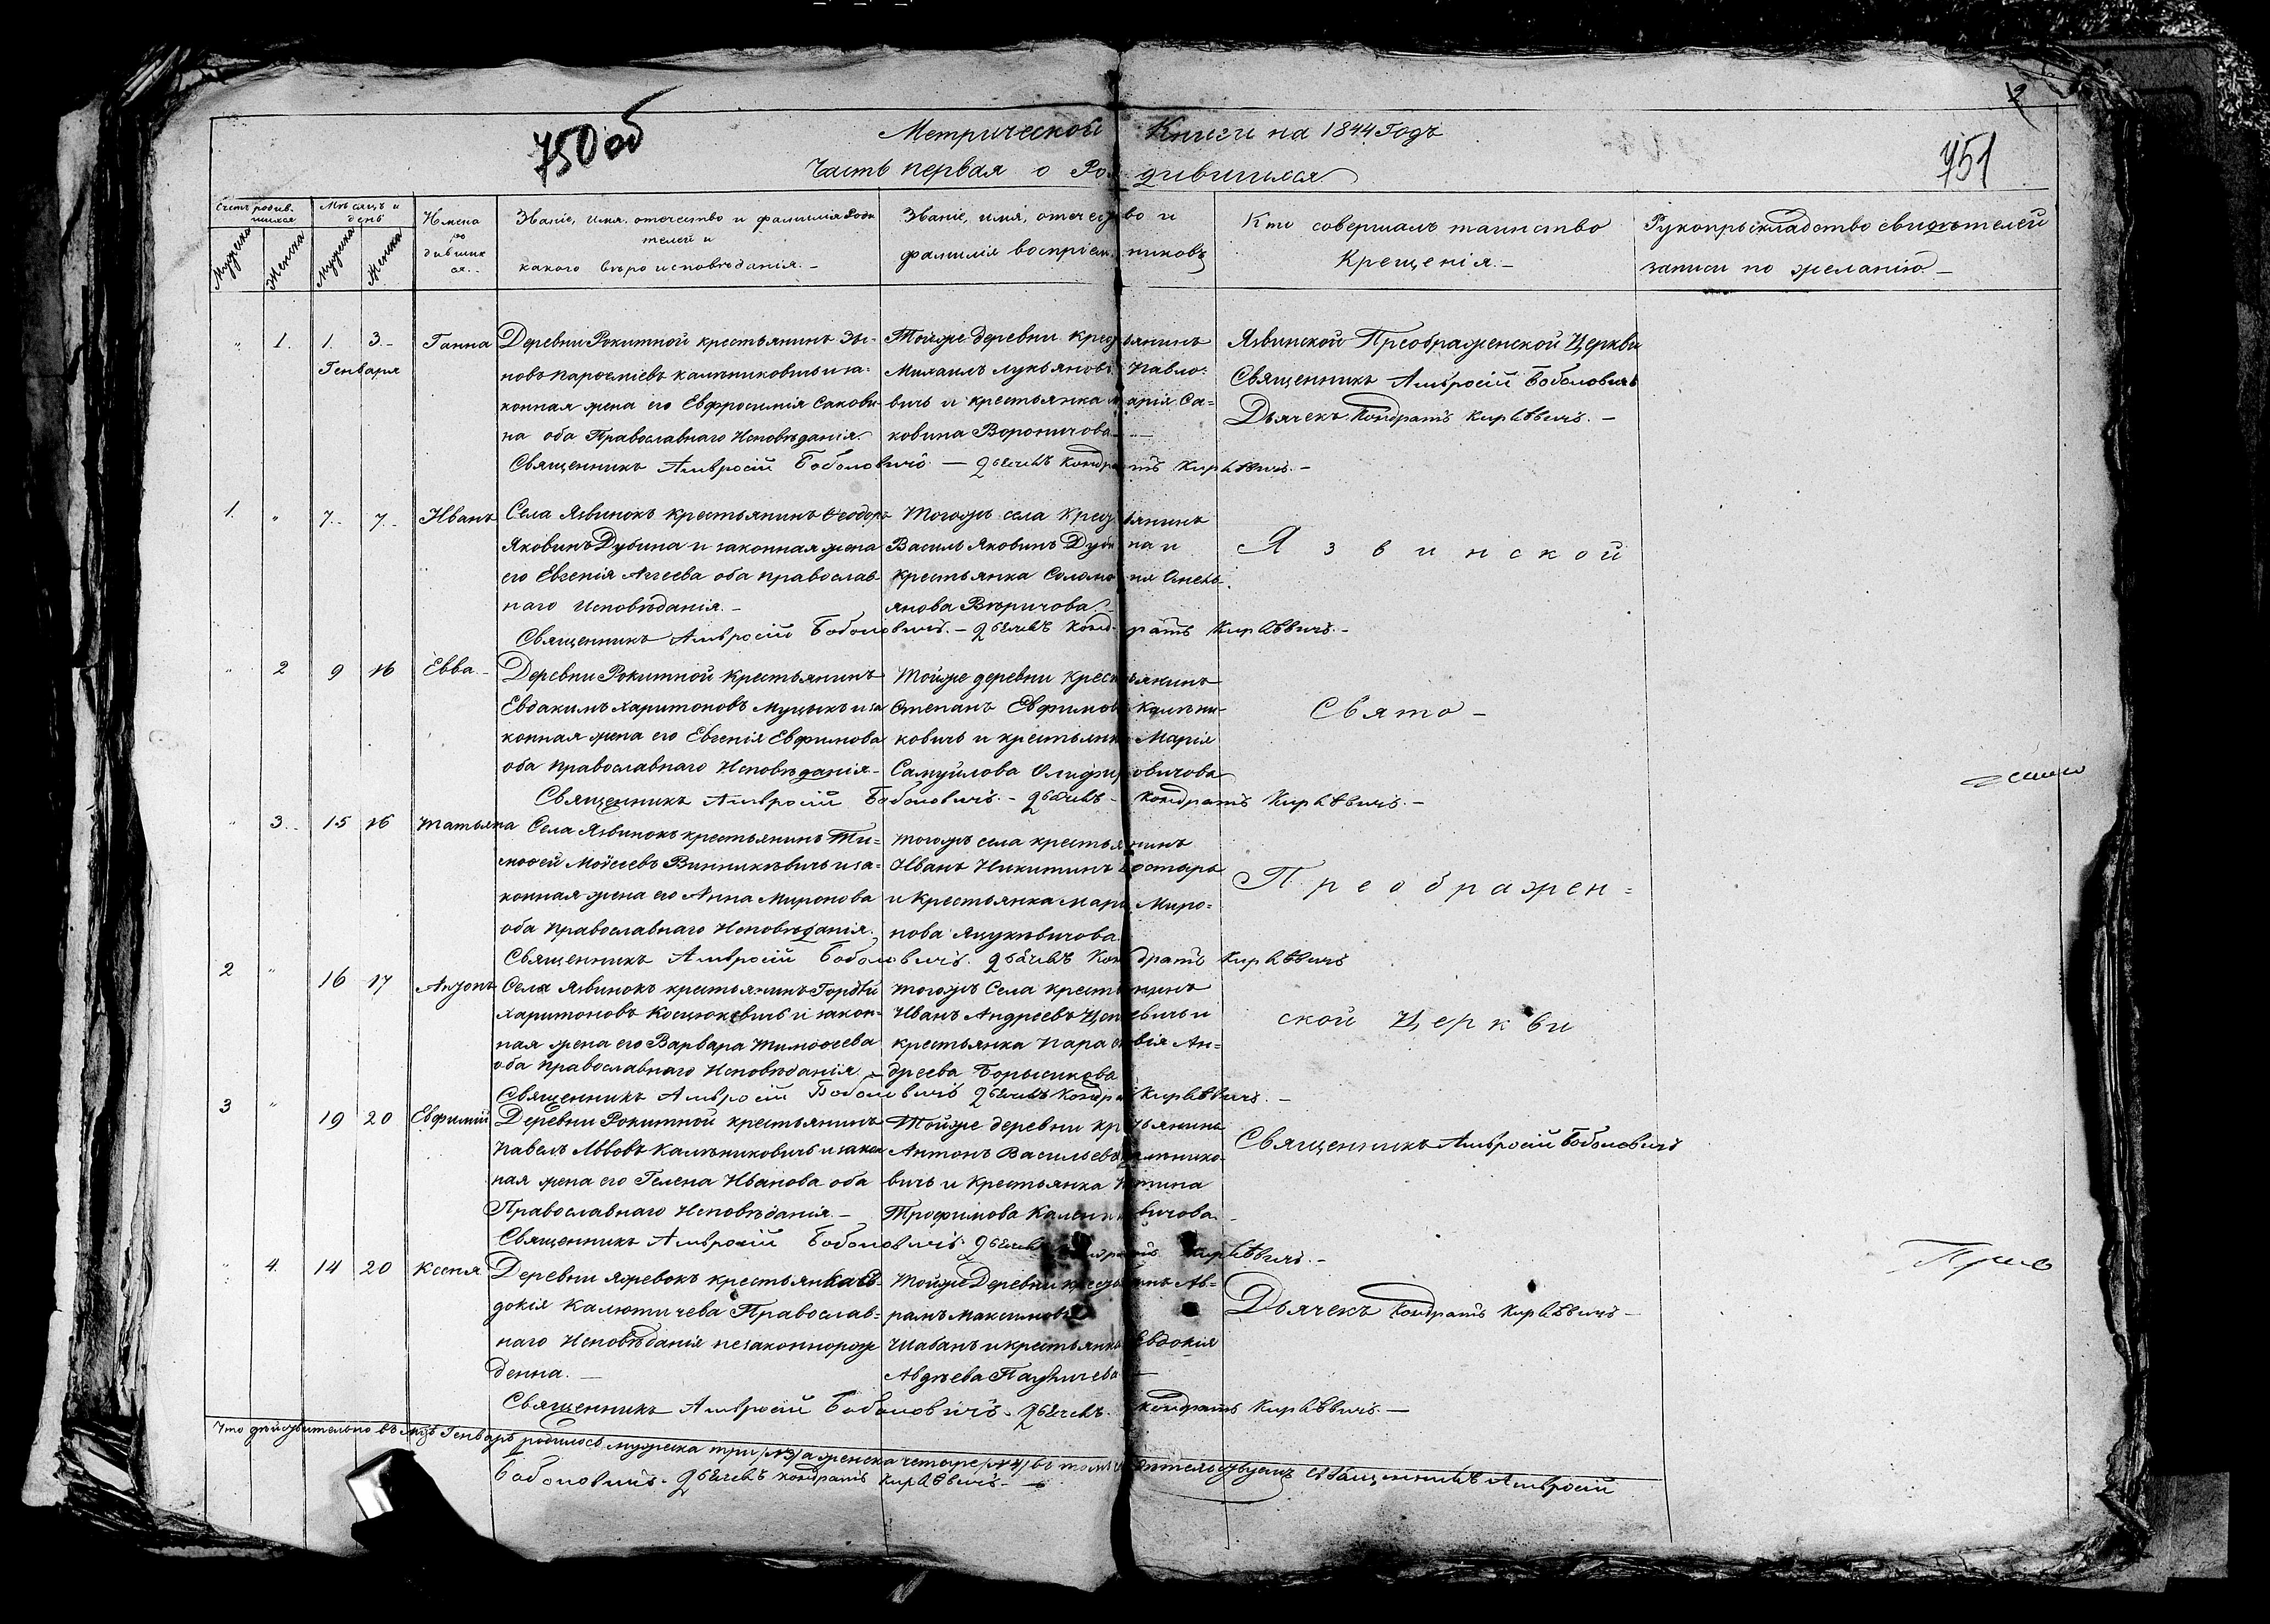 2
750 об
751
Метрической Книги на 1844 Годъ
Часть первая о Родившихся
Счетъ родив-
шихся
Мѣсяцъ и
день
Мужеска
Женска
Мужеска
Женска
Имена
ро
дивших
ся
Званіе, имя, отечество и фамилія Роди
телей и
какого вѣроисповѣданія. –
Званіе, имя, отечество и
фамилія воспріемниковъ
Кто совершалъ таинство
Крещенія. –
Рукоприкладство свидѣтелей
записи по желанію –
" 1. 1. 3. – Ганна
Генваря
Деревни Рокитной крестьянинъ
конная жена его Евфросинія Сакови-
на оба Православнаго Исповѣданія.
Тойже деревни крестьянинъ
Михаилъ Лукьяновъ Павло-
вичъ и крестьянка Марія Са-
ковина Вороничова –
Язвинской Преображенской Церкви
Священникъ Амвросій Боболовичъ
Дьячекъ Кондратъ Кирѣевичъ. –
Священникъ Амвросій Боболовичъ – Дьячекъ Кондратъ Кирѣевичъ. –
1. " 7. – 7. – Иванъ
Села Язвинокъ крестьянинъ Ѳеодоръ
Яковинъ Дубина и законная жена
его Евгенія Аггеева оба православ
наго Исповѣданія. –
Тогожъ села Крестьянинъ
Василь Яковинъ Дубина и
крестьянка
янова Вѣричова. –
Священникъ Амвросій Боболовичъ. – Дьячекъ Кондратъ Кирѣевичъ. –
" 2 9 16 Евва –
Деревни Рокитной Крестьянинъ
Евдакимъ Харитоновъ Муцыкъ и за
конная жена его Евгенія Евфимова
оба православнаго Исповѣданія –
Тойже деревни Крестьянинъ
Степанъ Евфимовъ Калѣни-
ковичъ и крестьянка Марія
Самуйлова
Священникъ Амвросій Боболовичъ. – Дьячекъ – Кондратъ Кирѣевичъ. –
" 3. – 15 16 Татьяна
Села Язвинокъ крестьянинъ Ти-
моѳей Мойсеевъ Винникѣвичъ и за-
конная жена его Анна Миронова
оба православнаго Исповѣданія.
Тогожъ села крестьянинъ
Иванъ Никитинъ
и Крестьянка Марія Миро-
нова Яцукѣвичова
Священникъ Амвросій Боболовичъ. Дьячекъ Кондратъ Кирѣевичъ
2 " 16 17 Антонъ
Села Язвинокъ крестьянинъ Гордѣй
Харитоновъ Косцюкевичъ и закон-
ная жена его Варвара Тимоѳеева
оба православнаго Исповѣданія –
тогожъ Села крестьянинъ
Иванъ Андреевъ
крестьянка Параскевія Ан-
дреева Борысикова
Священникъ Амвросій Боболовичъ Дьячекъ Кондратъ Кирѣевичъ. –
3 " 19 20 Евфимій
Деревни Рокитной крестьянинъ
Павелъ Львовъ Калѣниковичъ и закон
ная жена его Гелена Иванова оба
Православнаго Исповѣданія –
Тойже деревни крестьянинъ
Антонъ Васильевъ Калѣнико-
вичъ и Крестьянка
Трофимова
Священникъ Амвросій Боболовичъ. Дьячекъ Кондратъ Кирѣевичъ. –
" 4. 14 20 Ксеня
Деревни Яжевокъ крестьянка Ев-
докія Калютичева Православ-
наго Исповѣданія незаконнорож
денна. –
Тойже Деревни крестьянинъ Ав-
рамъ Максимовъ
Шабанъ и крестьянка Евдокія
Авдѣева
Священникъ Амвросій Боболовичъ. Дьячекъ. Кондратъ Кирѣевичъ. –
Язвинской
Свято –
Преображен-
ской Церкви
Священникъ Амвросій Боболовичъ
Дьячекъ Кондратъ Кирѣевичъ –
Что дѣйствительно въ мцѣ Генварѣ родилось мужеска три /№3/ а женска четыре /№4/ въ томъ свидѣтельствуемъ Священникъ Амвросій
Боболовичъ. Дьячекъ Кондратъ Кирѣевичъ. –